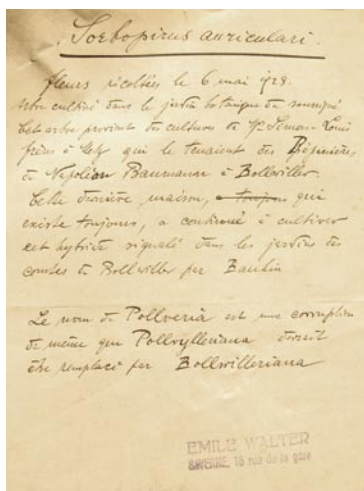 Sorbopirus auriculari.
fleurs récoltées le 6 mai 1928.
Arbre cultivé dans le jardin botanique de
Cet arbre provient des cultures de Mr Simon-Louis
frères à Metz qui le tenaient des Pépinières
de Napoléon Baumann à Bollwiller.
Cette dernière maison, toujours qui
existe toujours, a continué à cultiver
cet hybride signalé dans les jardins des
comtes de Bollwiller par Bauhin
Le nom de Pollveria est une corruption
de même que Pollvylleriana devrait
être remplacé par Bollwilleriana
EMILE WALTER
SAVERNE, 16 rue de la gare